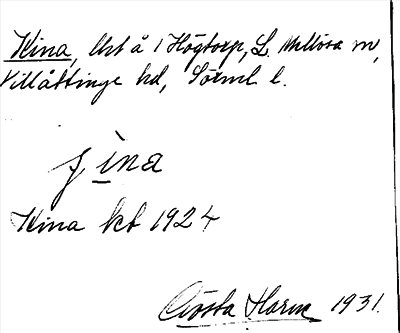 Kina, lht å 1 Högtorp, L. Mellösa sn,
Villåttinge hd, Sörml. l.
ʃina
Kina kt 1924
Gösta Harm 1931.